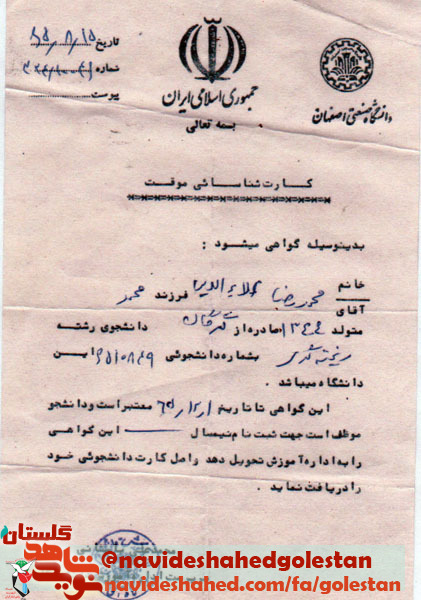 تاریخ ۶۵/۸/۱۵
شماره
پیوست
جمهوری اسلامی ایران
بسمه تعالی
دانشگاه صنعتی اصفهان
کارت شناسائی موقت
بدینوسیله گواهی میشود :
خانم
آقای محمدرضا علاءالدین فرزند محمد
متولد ۱۳۴۴ صادره از گرگان دانشجوی رشته
ریخته گری بشماره دانشجوئی این
دانشگاه میباشد .
این گواهی تا تاریخ معتبر است و دانشجو
موظف است جهت ثبت نام نیمسال این گواهی
را به اداره آموزش تحویل دهد و اصل کارت دانشجوئی خود
را دریافت نماید .
گلستان
نوید شاهد
@navideshahedgolestan
navideshahed.com/fa/golestan